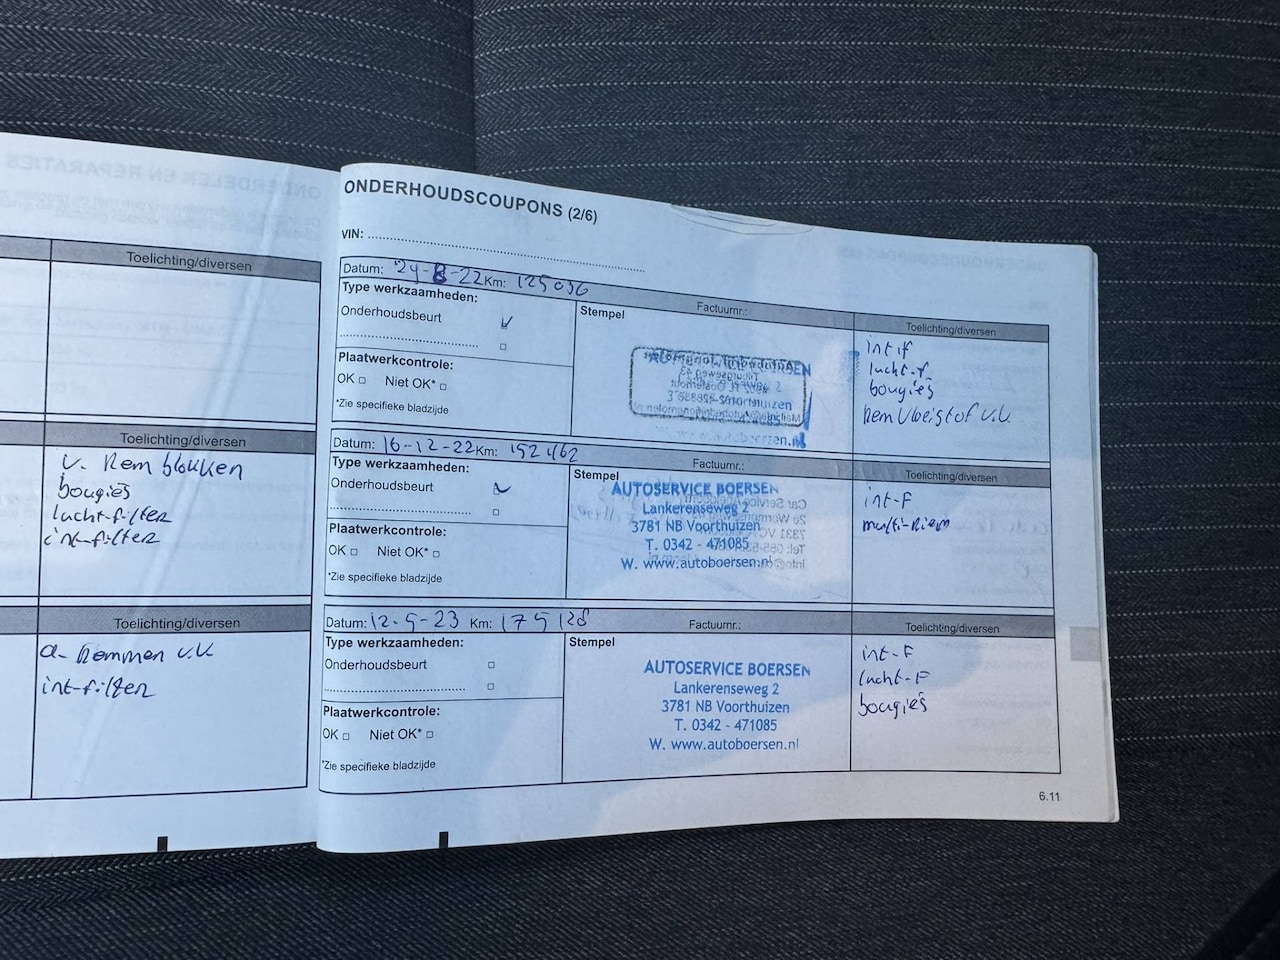 Toelichting/diversen
Toelichting/diversen
v. Rem blokken
bougiës
lucht-filter
int-filter
Toelichting/diversen
a- Remmen v.v.
int-filter
ONDERHOUDSCOUPONS (2/6)
VIN:
Datum: 24-8-22 Km: 125036
Type werkzaamheden:
Onderhoudsbeurt
Plaatwerkcontrole:
OK □ Niet OK* □
*Zie specifieke bladzijde
Stempel
Factuurnr.:
Toelichting/diversen
int-f
lucht-f.
bougiës
Rem vloeistof v.v.
Datum: 16-12-22 Km: 152462
Type werkzaamheden:
Onderhoudsbeurt
Plaatwerkcontrole:
OK □ Niet OK* □
*Zie specifieke bladzijde
Stempel
Factuurnr.:
AUTOSERVICE BOERSEN
Lankerenseweg 2
3781 NB Voorthuizen
T. 0342 - 471085
W. www.autoboersen.nl
Toelichting/diversen
int-F
multi-Riem
Datum: 12-5-23 Km: 175128
Type werkzaamheden:
Onderhoudsbeurt □
□
Plaatwerkcontrole:
OK □ Niet OK* □
*Zie specifieke bladzijde
Stempel
Factuurnr.:
AUTOSERVICE BOERSEN
Lankerenseweg 2
3781 NB Voorthuizen
T. 0342 - 471085
W. www.autoboersen.nl
Toelichting/diversen
int-F
lucht-F
bougiës
6.11